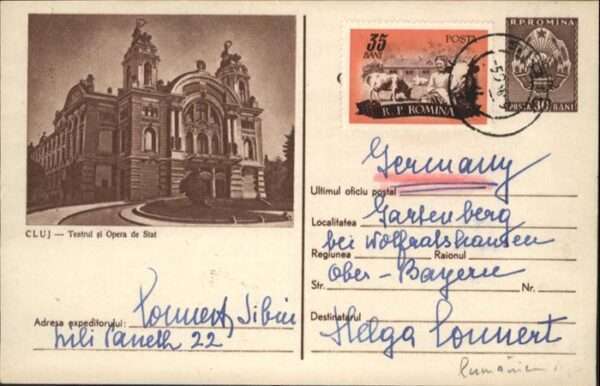 35
BANI
POSTA
R. P. ROMINA
R.P. ROMINA
POSTA 30 BANI
Germany
Ultimul oficiu poștal
Gartenberg
Localitatea
bei Wolfratshausen
Regiunea Raionul
Ober-Bayern
Str. Nr.
Destinatarul
Helga Connert
CLUJ — Teatrul și Opera de Stat
Adresa expeditorului: Connert, Sibiu
Lili Paneth 22